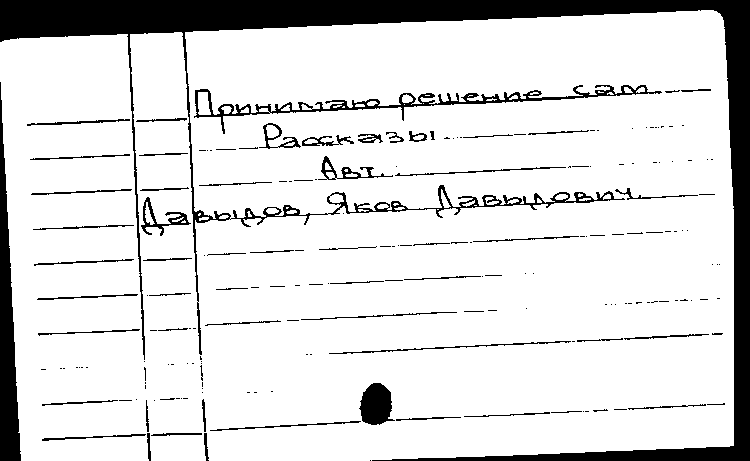 Принимаю решение сам
Рассказы
Авт.:
Давыдов, Яков Давыдович.